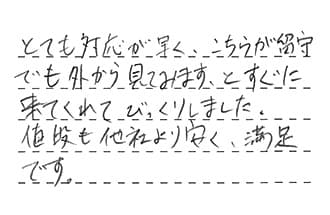 とても対応が早く、こちらが留守
でも外から見てみます、とすぐに
来てくれてびっくりしました。
値段も他社より安く、満足
です。